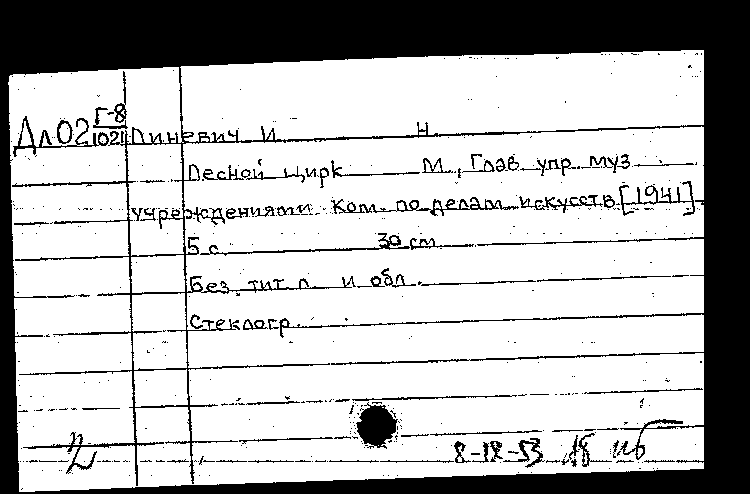 Дл02 Г-8/1021 Линевич И. Н.
Лесной цирк М., Глав. упр. муз.
учреждениями Ком. по делам искусств [1941]
5 с. 30 см.
Без тит. л. и обл.
Стеклогр.
8-12-53